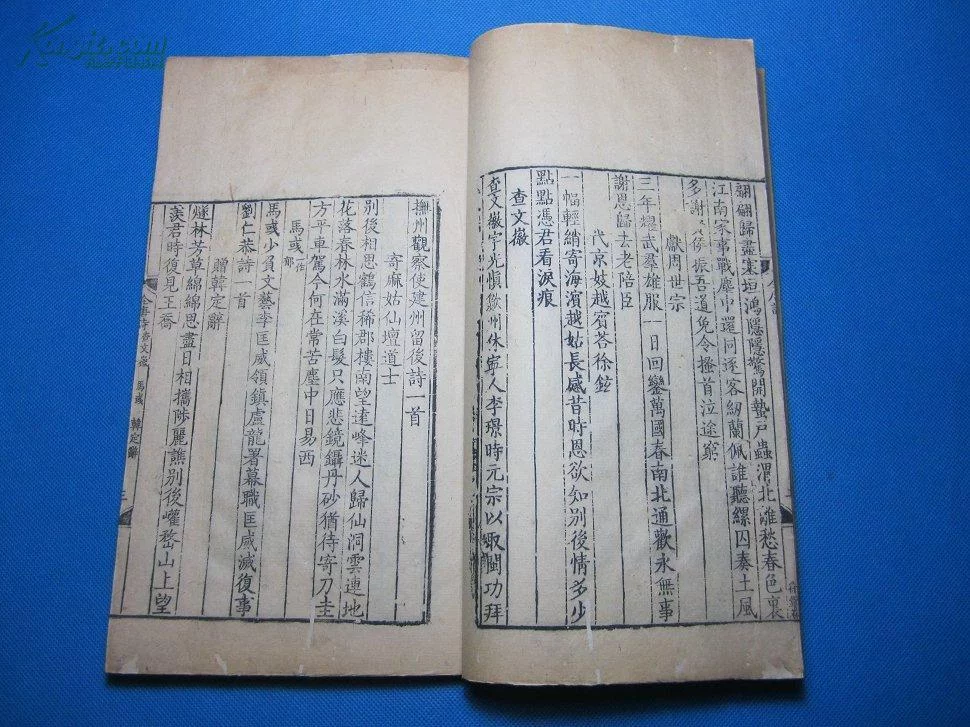 翩翩歸盡塞垣鴻隱隱驚開蟄戸蟲渭北離愁春色裏
江南家事戰塵中還同逐客紉蘭佩誰聽纍囚奏土風
多謝侯振吾道免令搔首泣途窮
獻周世宗
三年耀武羣雄服一日回鑾萬國春南北通歡永無事
謝恩歸去老陪臣
代京妓越賓荅徐鉉
一幅輕綃寄海濱越姑長感昔時恩欲知别後情多少
點點憑君看淚痕
查文徽
查文徽字光慎歙州休寧人李璟時元宗以取閩功拜
撫州觀察使建州留後詩一首
寄麻姑仙壇道士
别後相思鶴信稀郡樓南望遠峰迷人歸仙洞雲連地
花落春林水滿溪白髮只應悲鏡鑷丹砂猶待寄刀圭
方平車駕今何在常苦塵中日易西
馬彧一作郁
馬彧少負文藝李匡威領鎮盧龍署幕職匡威滅復事
劉仁恭詩一首
贈韓定辭
燧林芳草綿綿思盡日相攜陟麗譙别後巏嵍山上望
羨君時復見王喬
全唐詩 查文徽 馬彧 韓定辭
三